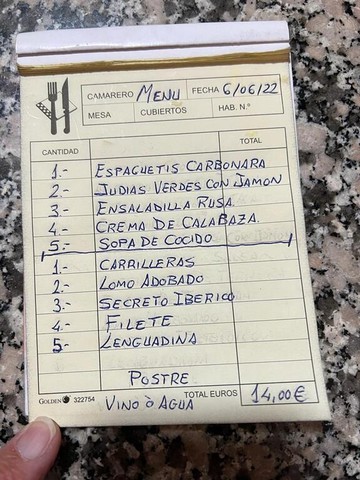 CAMARERO MENU FECHA 6/06/22
MESA CUBIERTOS HAB. N.º
CANTIDAD TOTAL
1.- ESPAGUETIS CARBONARA
2.- JUDIAS VERDES CON JAMON
3.- ENSALADILLA RUSA
4.- CREMA DE CALABAZA
5.- SOPA DE COCIDO
1.- CARRILLERAS
2.- LOMO ADOBADO
3.- SECRETO IBERICO
4.- FILETE
5.- LENGUADINA
POSTRE
GOLDEN 322754 VINO Ò AGUA TOTAL EUROS 14,00€